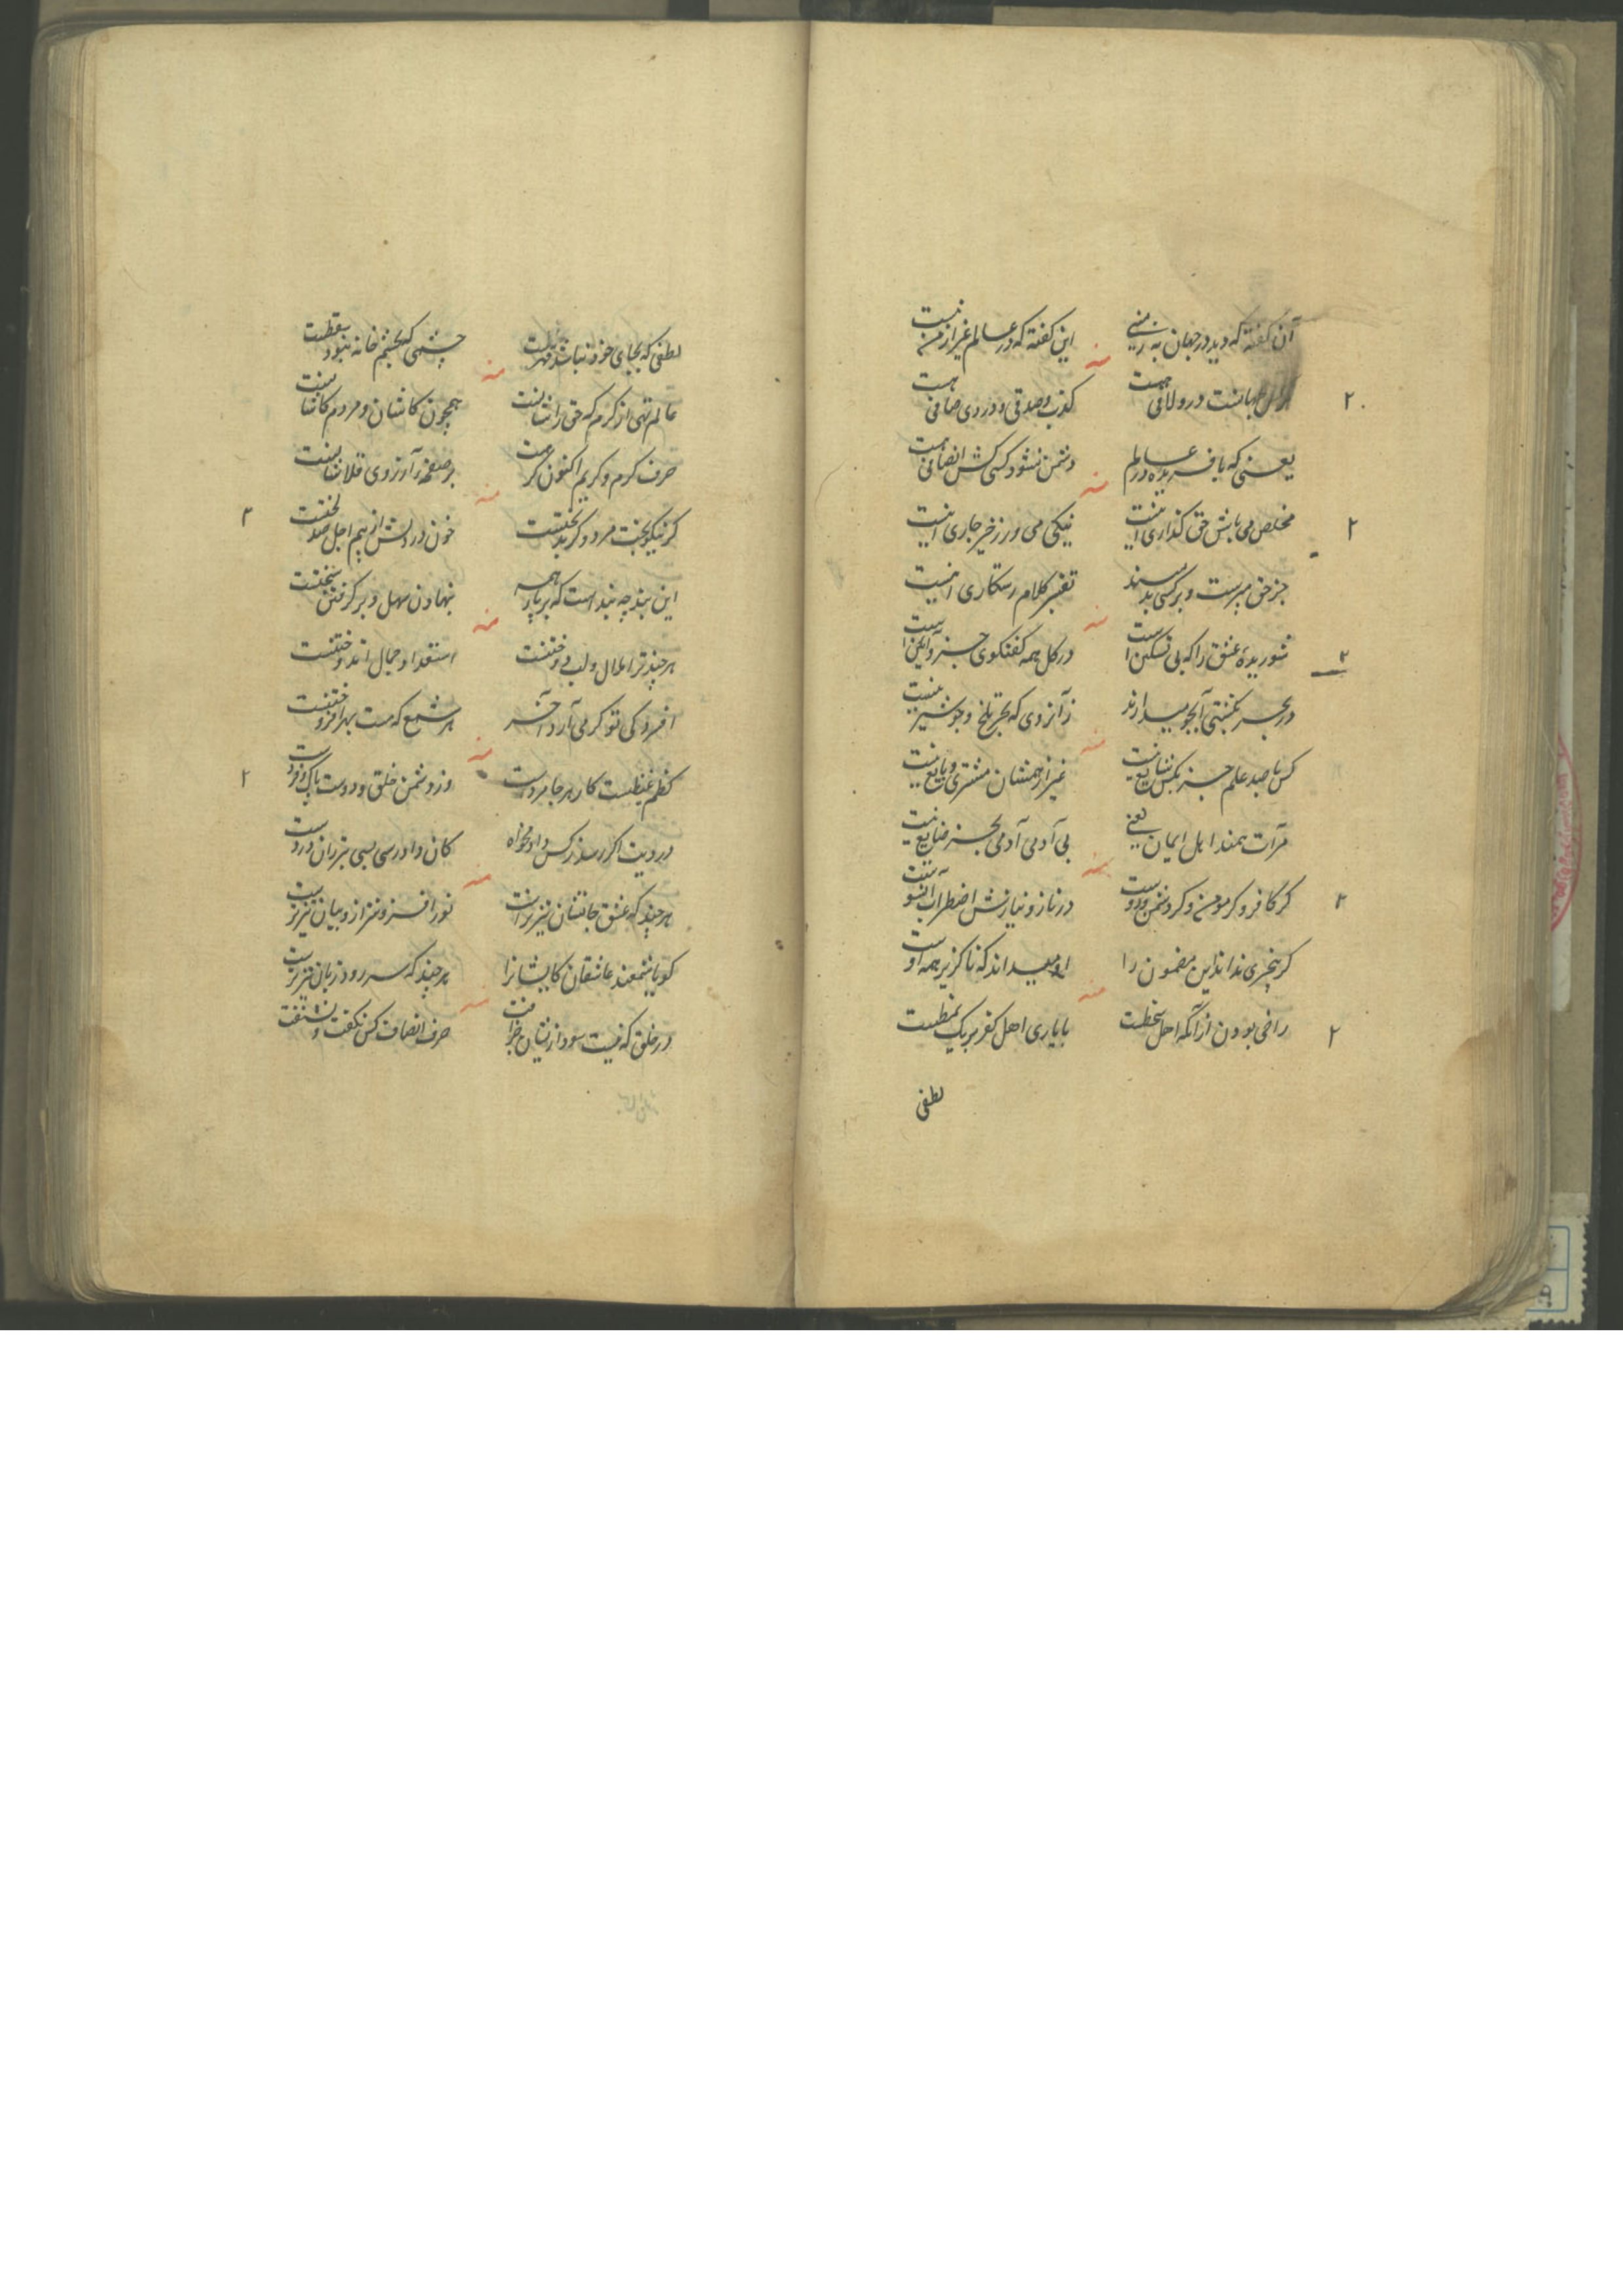 آن گفته که دید در جهان به ز منی
این گفته که در عالم غیر از من نیست
هست در و لافی هست
کذب و صدقی و درد و صافی هست
یعنی که بآفریده در عالم
دشمن نشود کسی کش انصافی هست
مخلص می باش حق گذاری اینست
نیکی می ورز خیر جاری اینست
جز حق مپرست و بر کسی بد مپسند
تفسیر کلام رستگاری اینست
شوریدهٔ عشق را که بی تسکین است
در کل همه گفتگوی
در بحر
ز آنروی که بحر تلخ و جو شیرینست
کس با صد علم جز بکس شایع نیست
غیر از همشان مشتری و بایع نیست
مرآت همند اهل ایمان یعنی
بی آدمی آدمی بجز ضایع نیست
گر کافر و گر مومن و گر دشمن و دوست
در ناز و نیازش اضطراب
گر بیخبری نداند این مضمون را
او میداند که ناگزیر همه اوست
راضی بودن از آنکه اهل سخطست
با یاری اهل کفر بر یک نمطست
لطفی
لطفی که بجای خود نباشد قهرست
چشمی که بچشم خانه نبود سقطست
عالم تهی از کرم که حق را شانیست
همچون کاشان و مردم کاشانست
حرف کرم و کریم اکنون گر هست
بر صفحه آرزوی فلانیست
گر نیکوبخت مرد و گر بدبختست
خون در دلش از بیم اجل صد لختست
این بند چه بند است که بر پای همه
بنهادن سهل و بر گرفتن سختست
هر چند ترا مال و لب دوختنست
استعداد جمال اندوختنست
افسردگی تو گرمی آرد آخر
هر شمع که هست بهر افروختنست
کظم غیظست کار هر جا مردست
وز دشمن خلق و دوست پاک و فردست
در دیت اگر رسد ز کس داد مخواه
کان دادرسی بسی بتر زان دردست
هر چند که عشق جانشان تیزترست
نورافزونتر از و بیان تیزترست
گویا شمعند عاشقان کایشانرا
هر چند که سر رود زبان تیزترست
در خلق که نیست سود از ایشان جز آفت
حرف انصاف کس نگفت و نشنفت